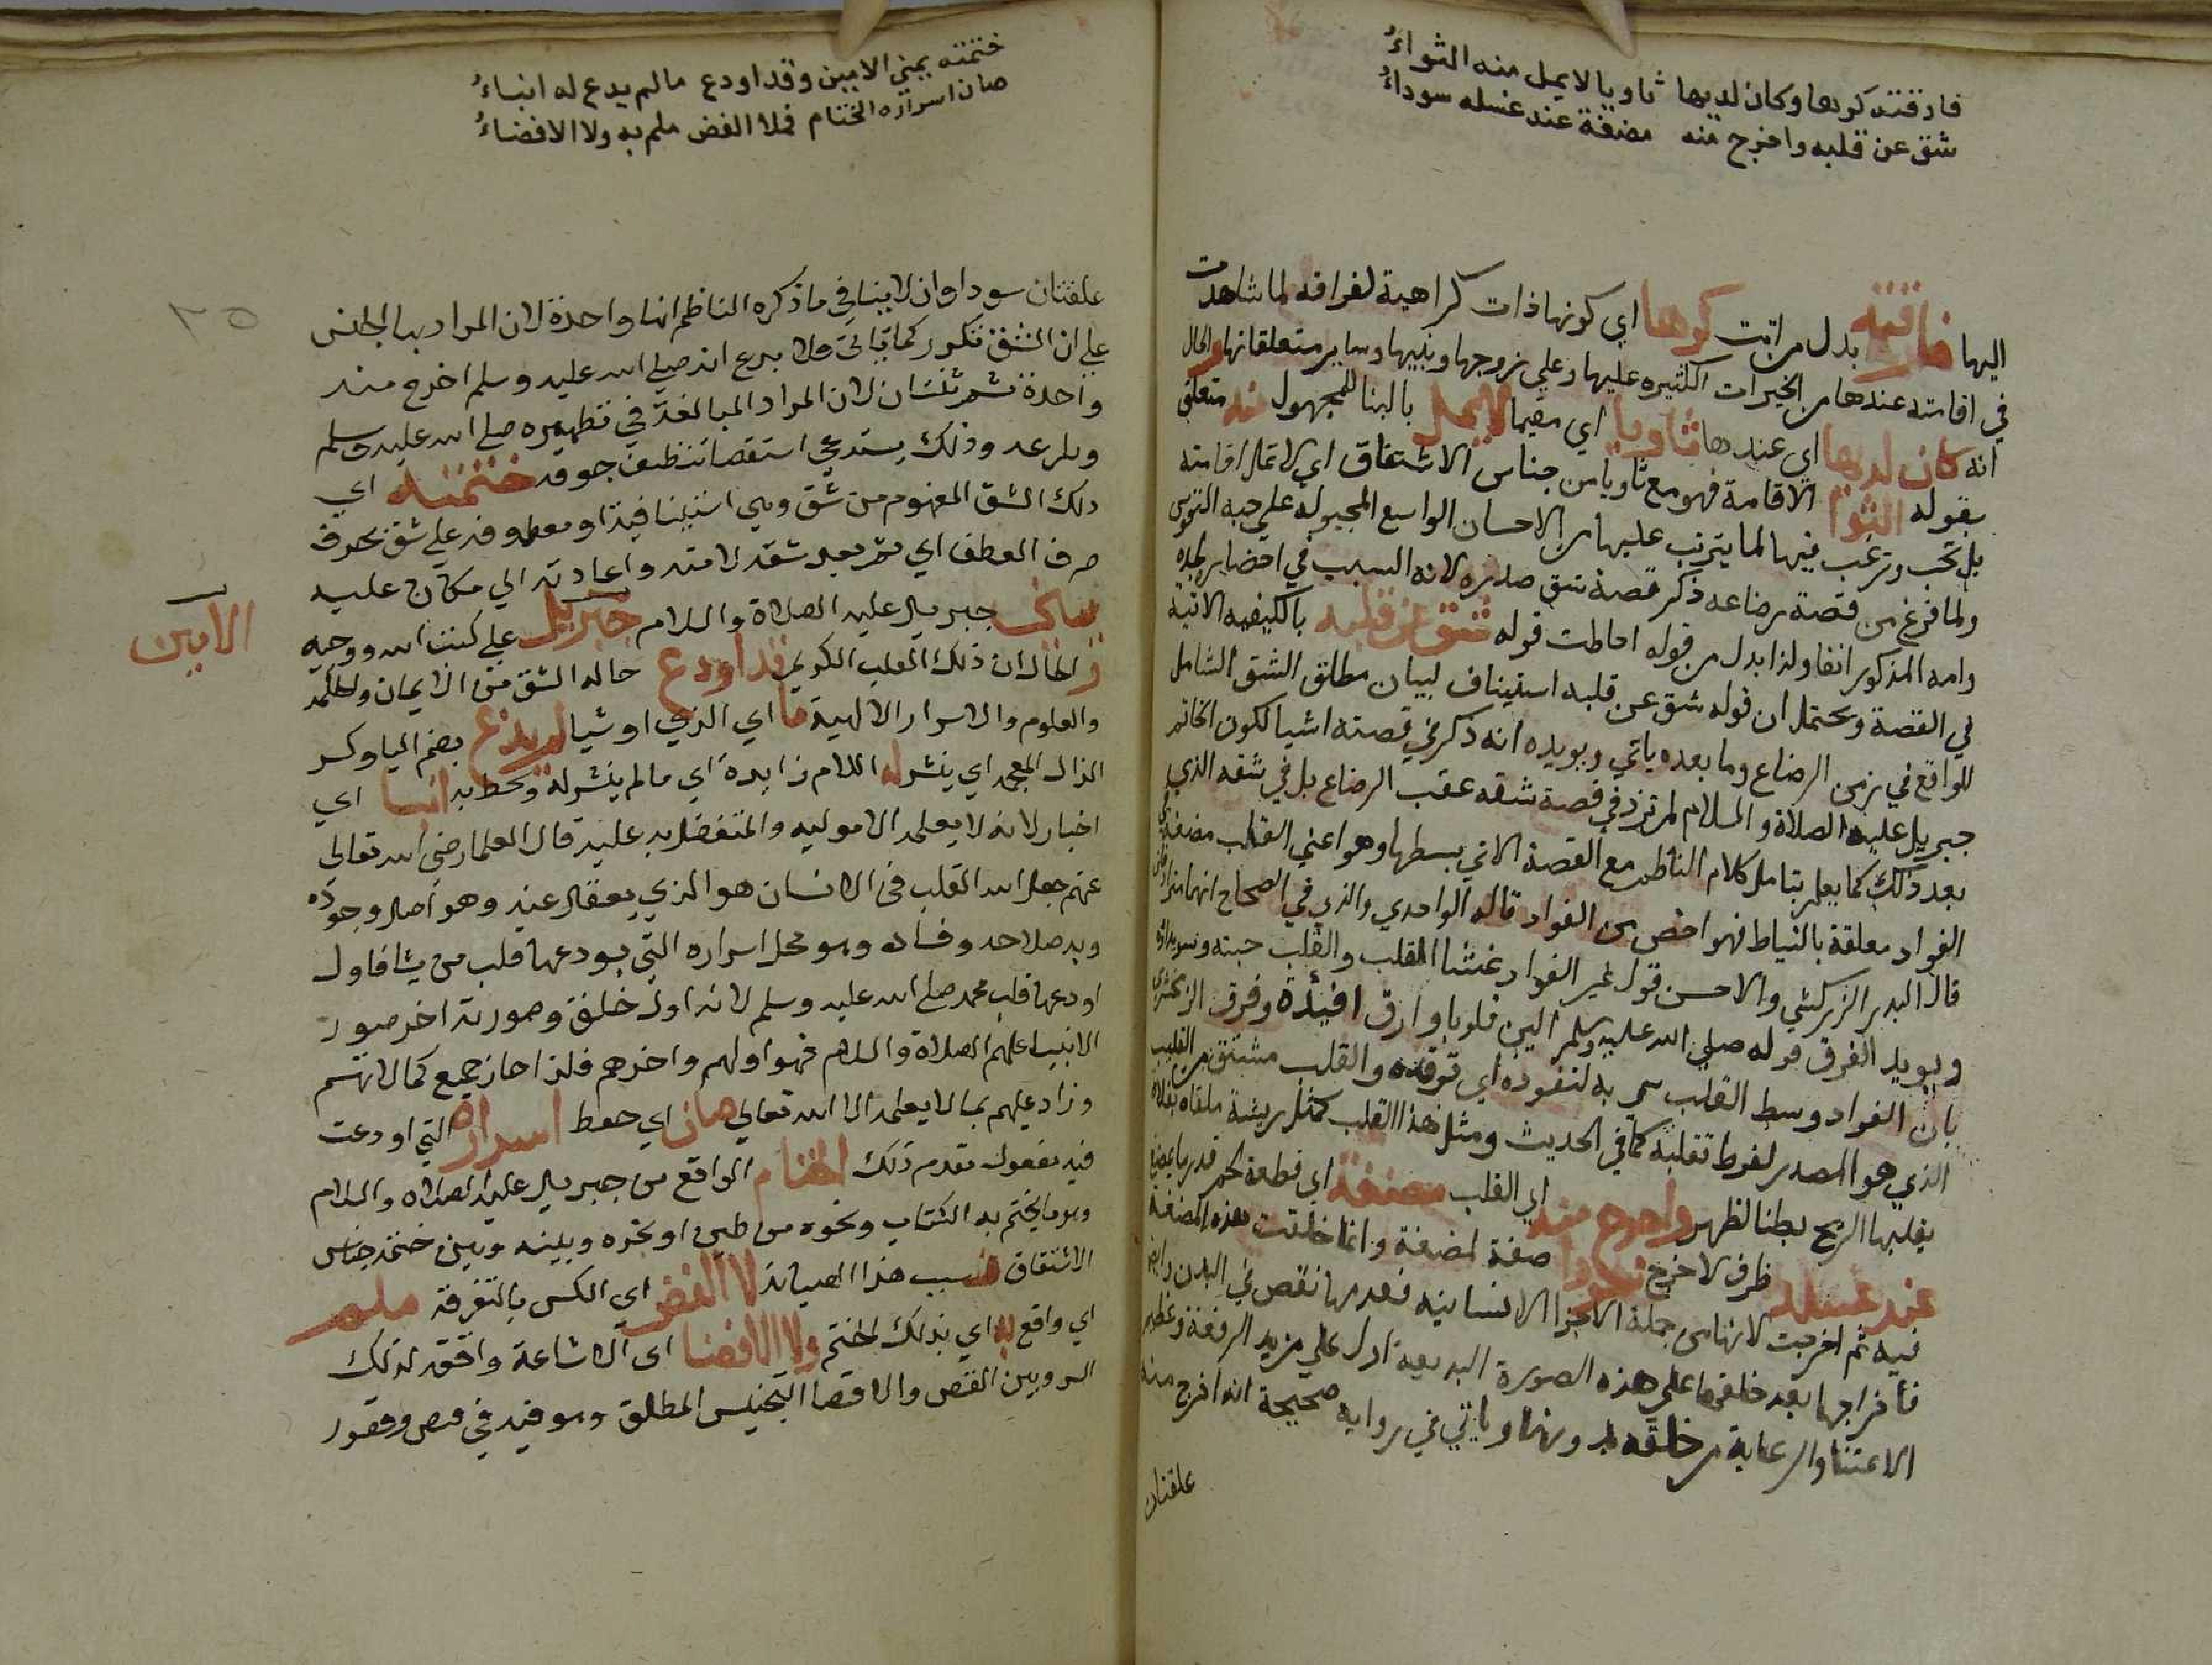 فارقته كرها وكان لديها ثاويا لا يمل منه الثواءُ
شق عن قلبه واخرج منه مضغة عند غسله سوداءُ
اليها فارقته بدل من اتت كرها اي كونها ذات كراهية لفراقه لما شاهدت
في اقامته عندها من الخيرات الكثيره عليها وعلي زوجها وبنيها وساير متعلقاتها والحال
انه كان لديها اي عندها ثاويا اي مقيما لا يمل بالبنا للمجهول منه متعلق
بقوله الثوا الاقامة فهو مع ثاويا من جناس الاشتقاق اي لا تمل اقامته
بل تحب وترغب فيها لما يترتب عليها من الاحسان الواسع المجبوله علي حبه النفوس
ولما فرغ من قصة رضاعه ذكر قصة شق صدره لانه السبب في احضاره لجده
وامه المذكور انفا ولذا بدل من قوله احاطت قوله شق عن قلبه بالكيفيه الاتية
في القصة ويحتمل ان قوله شق عن قلبه استيناف لبيان مطلق الشق الشامل
للواقع في زمن الرضاع وما بعده ياتي ويويده انه ذكر في قصته اشيا لكون الخاتم
جبريل عليه الصلاة والسلام لم ترد في قصة شقه عقب الرضاع بل في شقه الذي
بعد ذلك كما يعلم بتامل كلام الناظم مع القصة الاتي بسطها وهو اعني القلب مضغة في
الفواد معلقة بالنياط فهو اخص من الفواد قاله الواحدي والذي في الصحاح انهما مترادفان
قال البدر الزركشي والاحسن قول غير الفواد غشا القلب والقلب حبته وسويداؤه
ويويد الفرق قوله صلي الله عليه وسلم الين قلوبا وارق افئدة وفرق الزمخشري
بان الفواد وسط القلب سمي به لتفوده اي توقده والقلب مشتق من القلب
الذي هو المصدر لفرط تقلبه كما في الحديث ومثل هذا القلب كمثل ريشة ملقاه بفلاه
يقلبها الريح بطنا لظهر واخرج منه اي القلب مضغة اي قطعة لحم قدر ما يمضغ
عند غسله ظرف لاخرج سودا صفة لمضغة وانما خلقت هذه المضغة
فيه ثم اخرجت لانها من جملة الاجزا الانسانيه فعدمها نقص في البدن وايضا
فاخراجها بعد خلقها علي هذه الصورة البديعة ادل علي مزيد الرفعة وعظيم
الاعتنا والرعاية من خلقه بدونها وياتي في رواية صحيحة انه اخرج منه
علقتان
ختمته يمني الامين وقد اودع ما لم يدع له انباءُ
صان اسراره الختام فلا الفض ملم به ولا الافضاءُ
علقتان سوداوان لا ينافي ما ذكره الناظم انها واحدة لان المراد بها الجنس
علي ان الشق تكرر كما ياتي فلا بدع انه صلي الله عليه وسلم اخرج منه
واحدة ثم ثنتان لان المراد المبالغة في تطهيره صلي الله عليه وسلم
وذلك يستدعي استقصا تنظيف جوفه ختمته اي
ذلك الشق المفهوم من شق وهي استينافية او معطوفه علي شق بحذف
حرف العطف اي ثم بعد شقه لامته واعادته الي مكان عليه
يمني جبريل عليه الصلاة والسلام جبريل علي كتب الله ووحيه
الامين
و الحال ان ذلك القلب الكريم قد اودع حاله الشق من الايمان والحكمه
والعلوم والاسرار الالهية ما اي الذي او شيا لم يدع بضم اليا وكسر
الذال المعجمه اي ينشر له اللام زايدة اي ما لم ينشر له ويحط به انبا اي
اخبار لانه لا يعلمه الا موليه والمتفضل به عليه قال العلما رضي الله تعالي
عنهم جعل الله القلب في الانسان هو الذي يعقل عنه وهو اصل وجوده
وبه صلاحه وفساده وهو محل اسراره التي يودعها قلب من يشا فاول
اودعها قلب محمد صلي الله عليه وسلم لانه اول خلق وصورته اخر صور
الانبيا عليهم الصلاة والسلام فهو اولهم واخرهم فلذا حاز جميع كمالاتهم
وزاد عليهم بما لا يعلمه الا الله تعالي صان اي حفظ اسراره التي اودعت
فيه مفعول تقدم ذلك الختام الواقع من جبريل عليه الصلاة والسلام
وهو ما يختم به الكتاب ونحوه من طين او نحوه وبينه وبين ختمته جناس
الاشتقاق فبسبب هذا الصيانة لا الفض اي الكسر بالتفرقة ملم
اي واقع به اي بذلك الختم ولا الافضا اي الاشاعة وافقه لذلك
السر وبين الفض والافضا التجنيس المطلق وهو فيه في قصر وقصور
٣٥